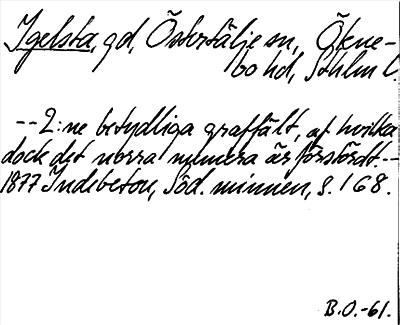 Igelsta, gd, Östertälje sn, Ökne-
bo hd, Sthlm l.
-- 2:ne betydliga graffält, af hvilka
dock det norra numera är förstördt.--
1877 Indebetou, Söd. minnen, s. 168.
B.O.-61.